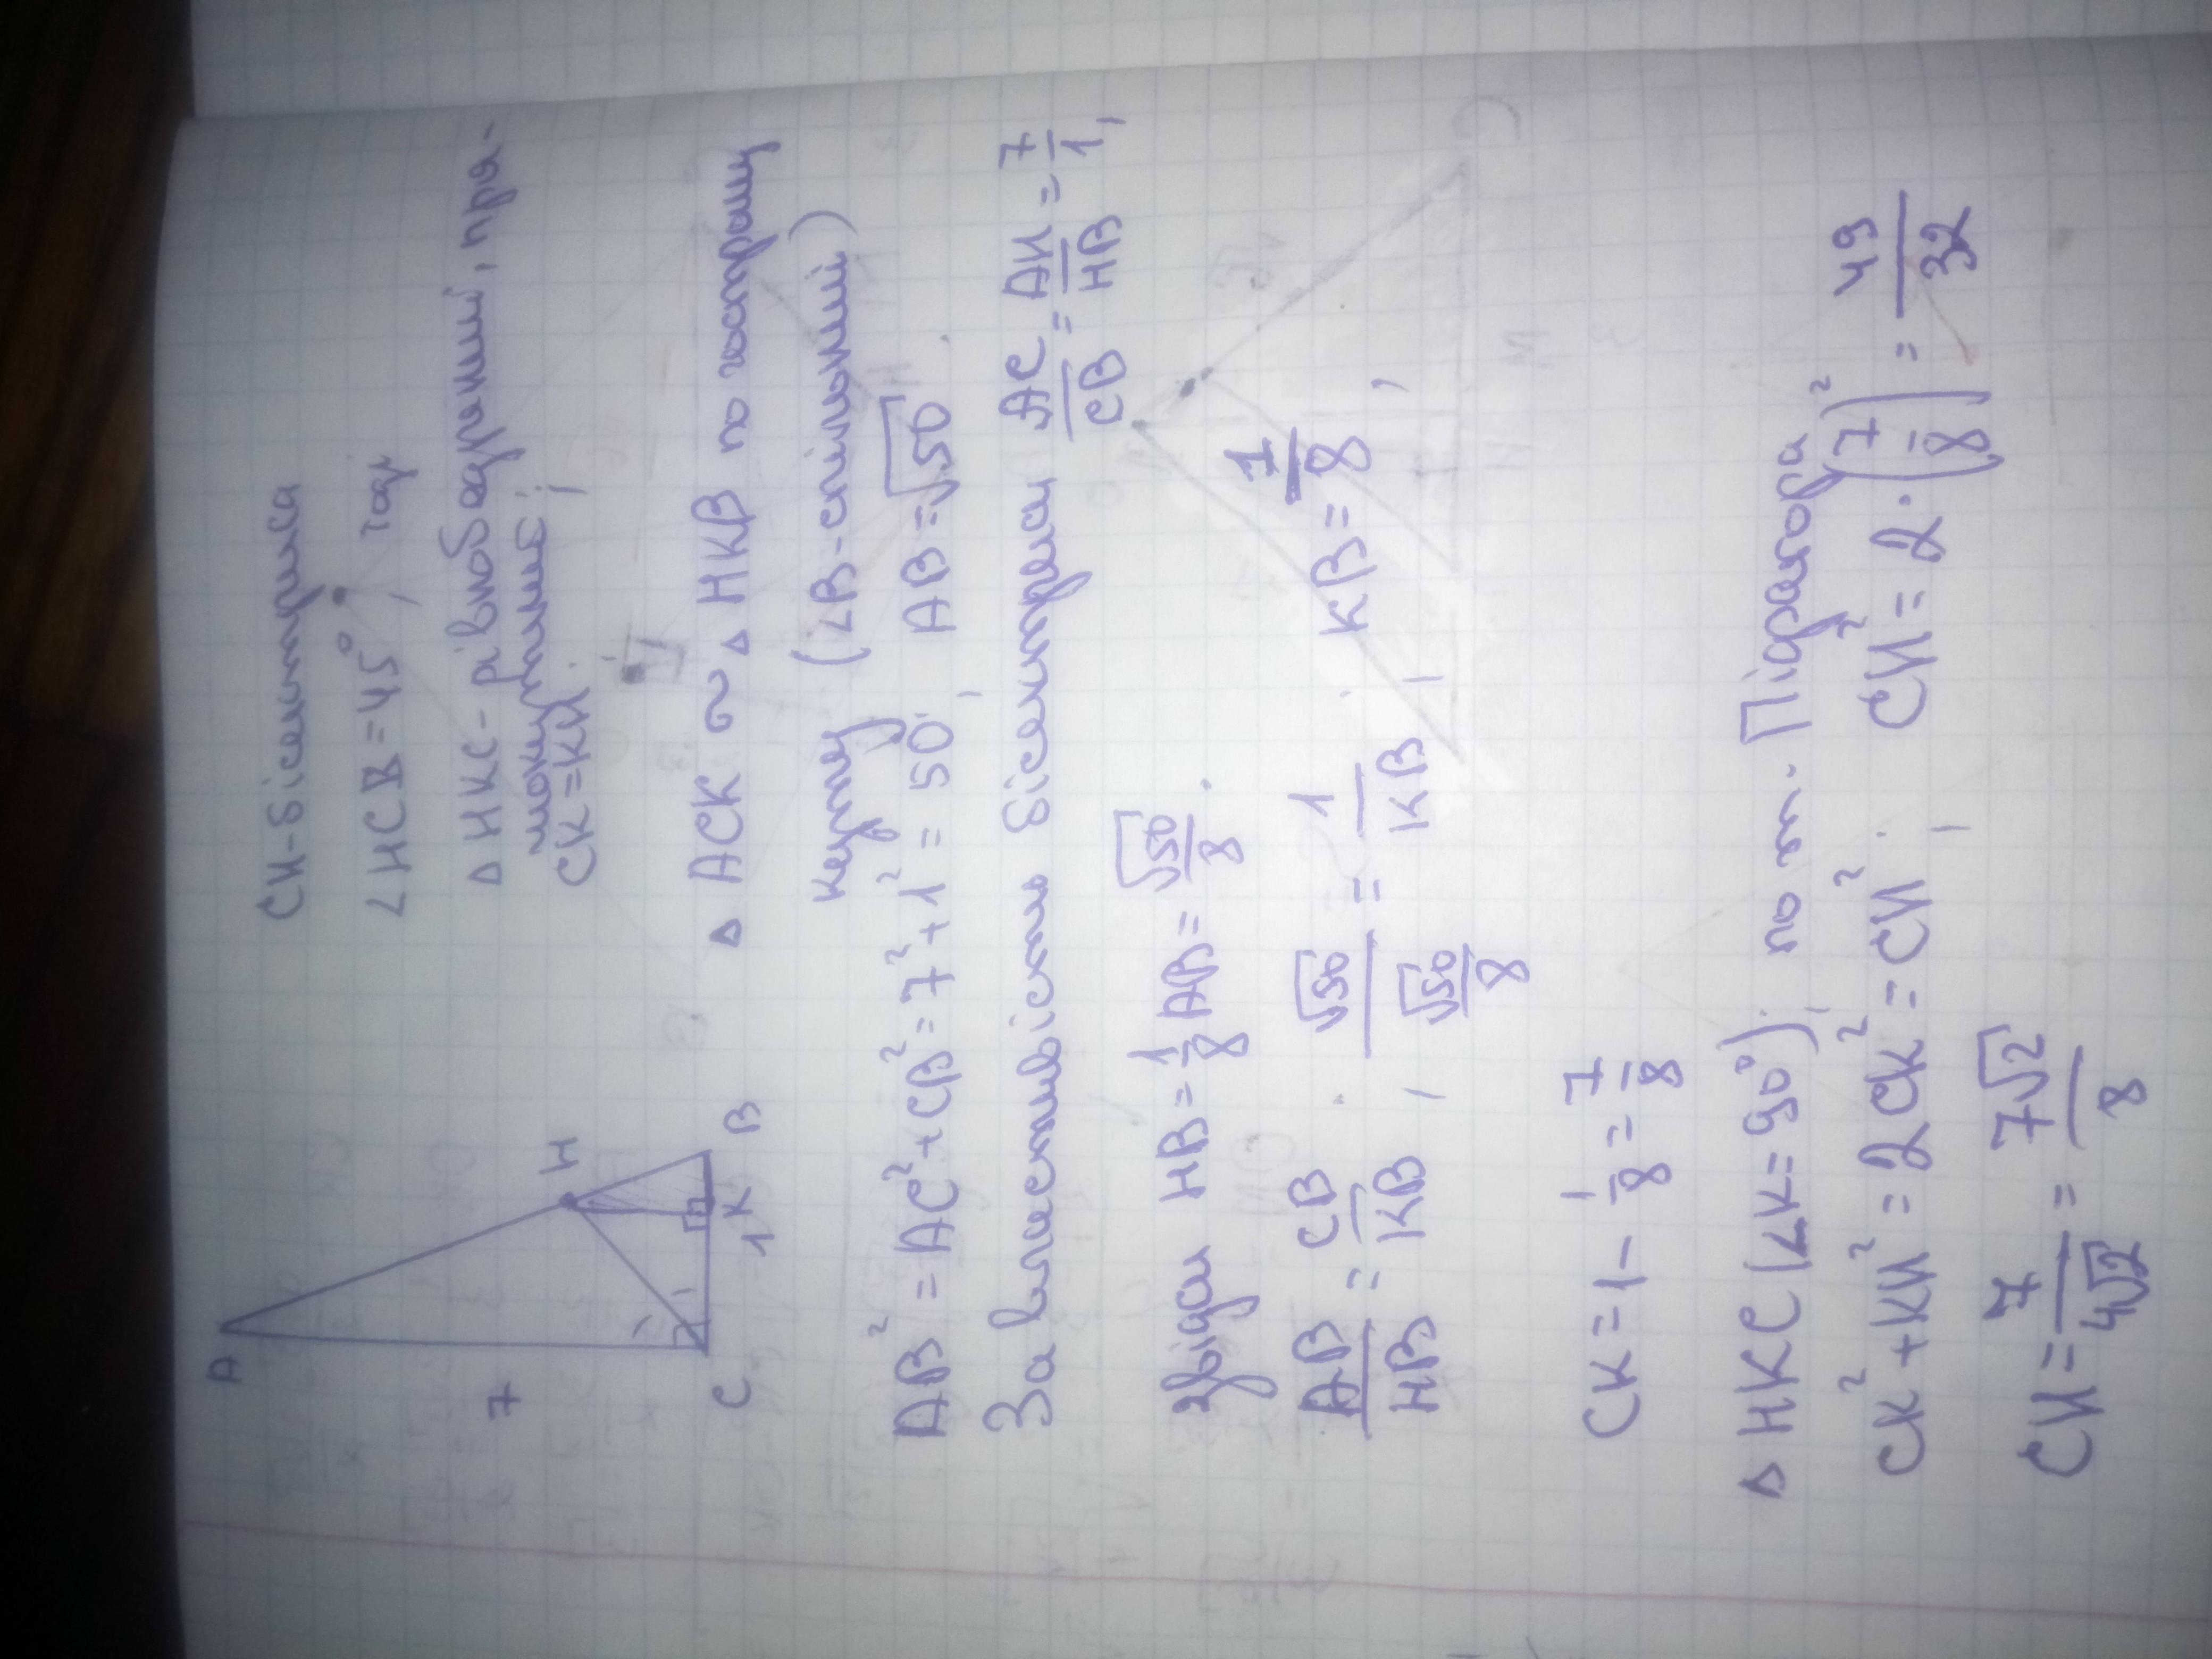 A
H
7
C
1
K
B
CH-бісектриса
∠HCB=45°, тоді
△HKC-рівнобедрений, пря-
мокутний;
CK=KH.
△ACK ~ △HKB по гострому
куту (∠B-спільний)
AB²=AC²+CB²=7²+1²=50, AB=√50.
За властивістю бісектриси AC/CB=AH/HB=7/1,
звідси HB=1/8 AB=√50/8.
AB/HB=CB/KB, √50/(√50/8)=1/KB, KB=1/8,
CK=1-1/8=7/8
△HKC(∠K=90°), по т. Піфагора
CK²+KH²=2CK²=CH², CH²=2·(7/8)²=49/32
CH=7/4√2=7√2/8